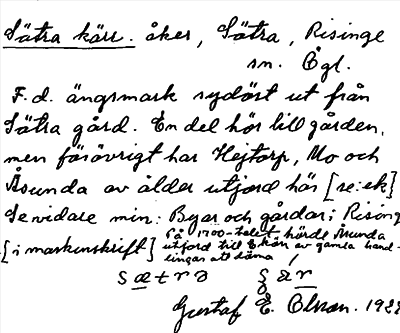 Sätra kärr. åker, Sätra, Risinge
sn. Ögl.
F.d. ängsmark sydöst ut från
Sätra gård. En del hör till gården,
men för övrigt har Hejtorp, Mo och
Åsunda av ålder utjord här [se: ek]
Se vidare min: Byar och gårdar i Risinge
[i markinskrift] På 1700-talet hörde Åsunda
utjord till Ekön av gamla hand-
lingar att döma!
sætra
Gustaf E. Olsson. 192